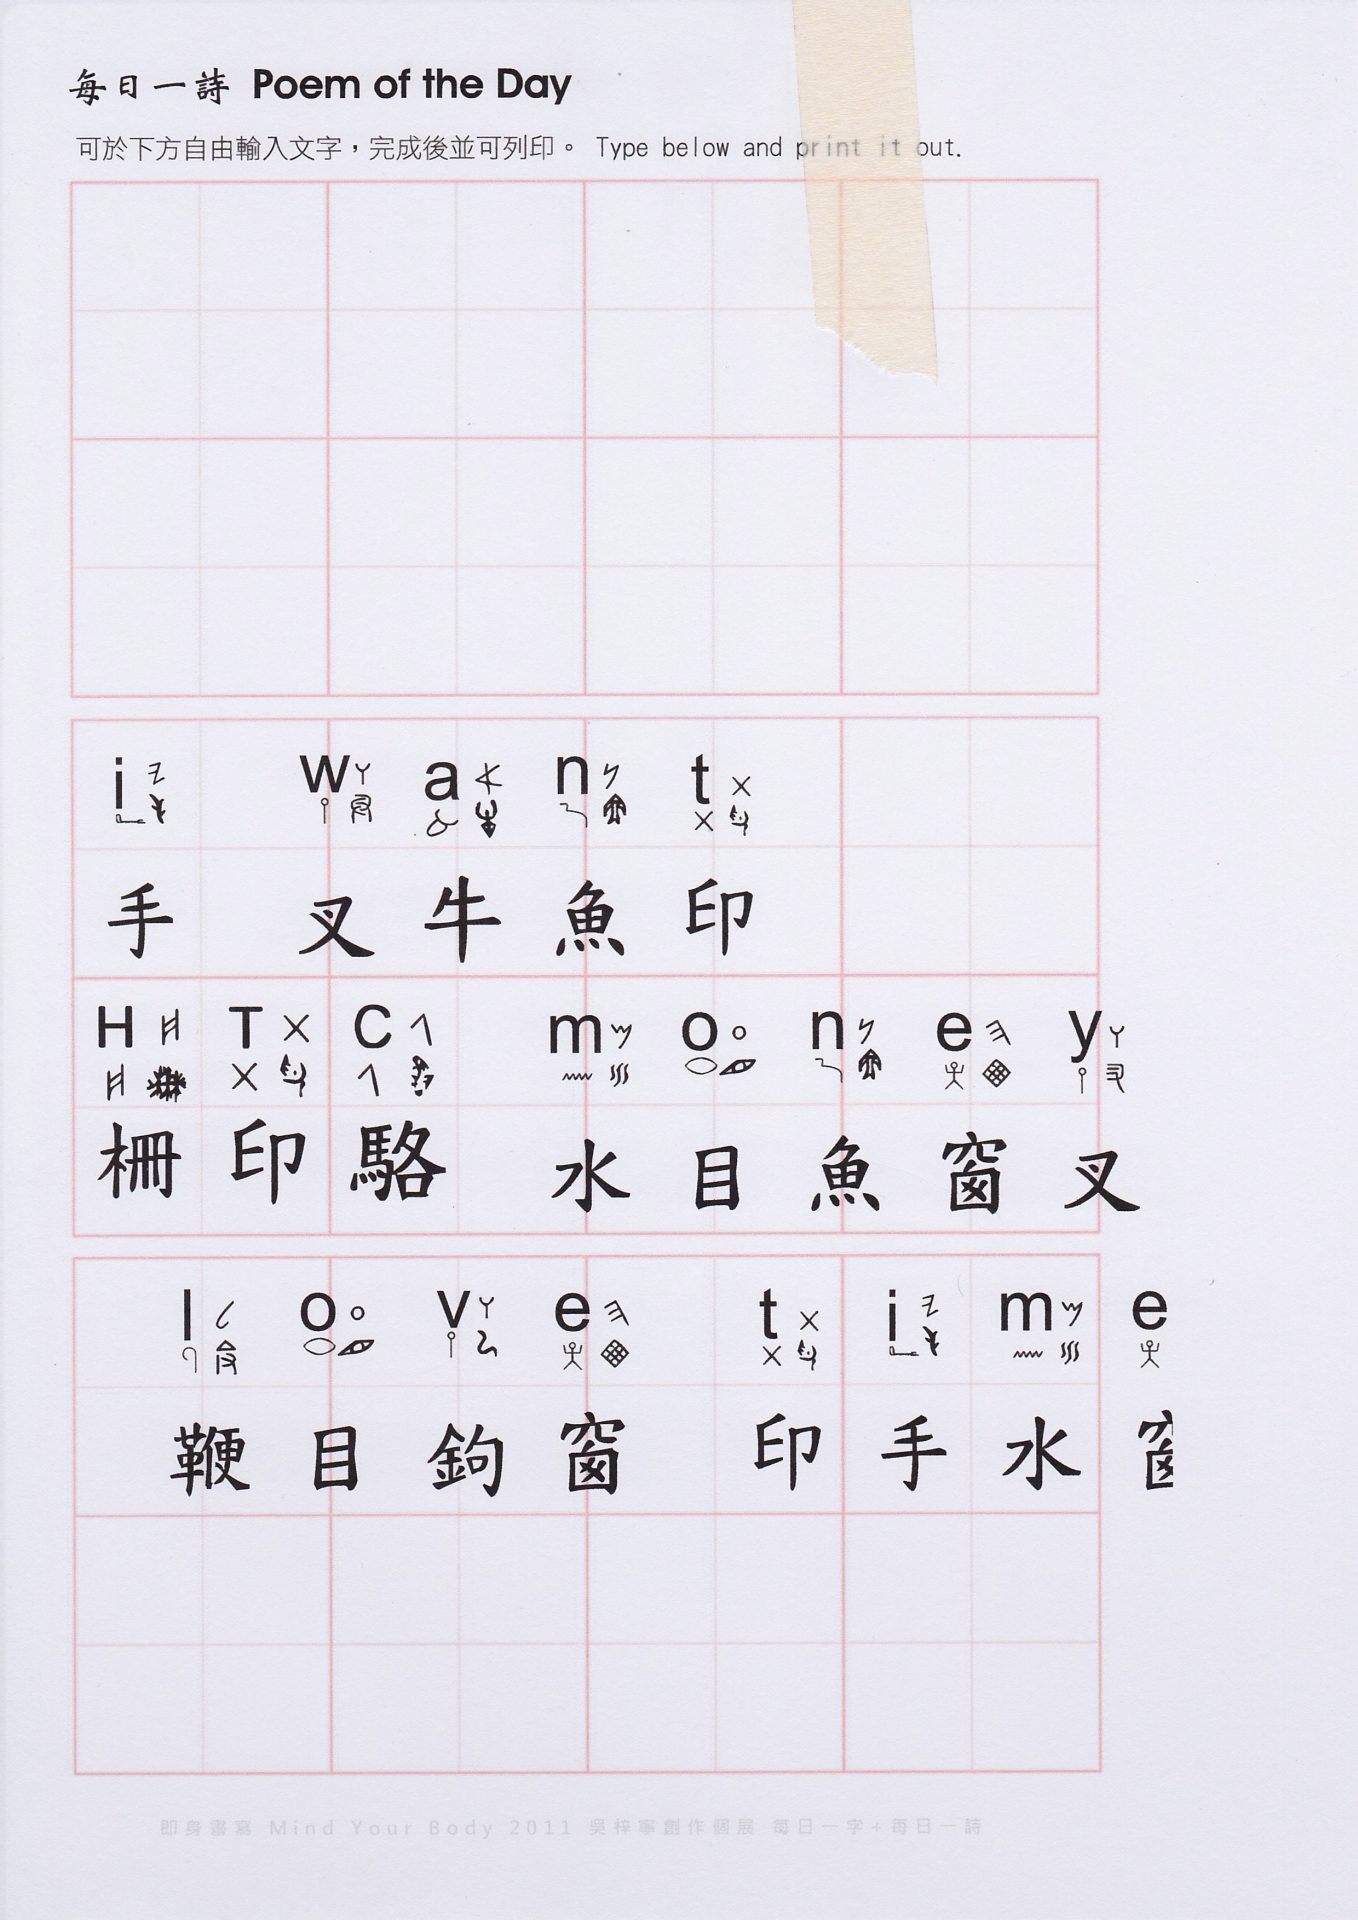 每日一詩 Poem of the Day
可於下方自由輸入文字，完成後並可列印。 Type below and print it out.
i want
手 叉牛魚印
HTC money
柵印駱 水目魚窗叉
love time
鞭目鉤窗 印手水窗
即身書寫 Mind Your Body 2011 吳梓寧創作個展 每日一字+每日一詩